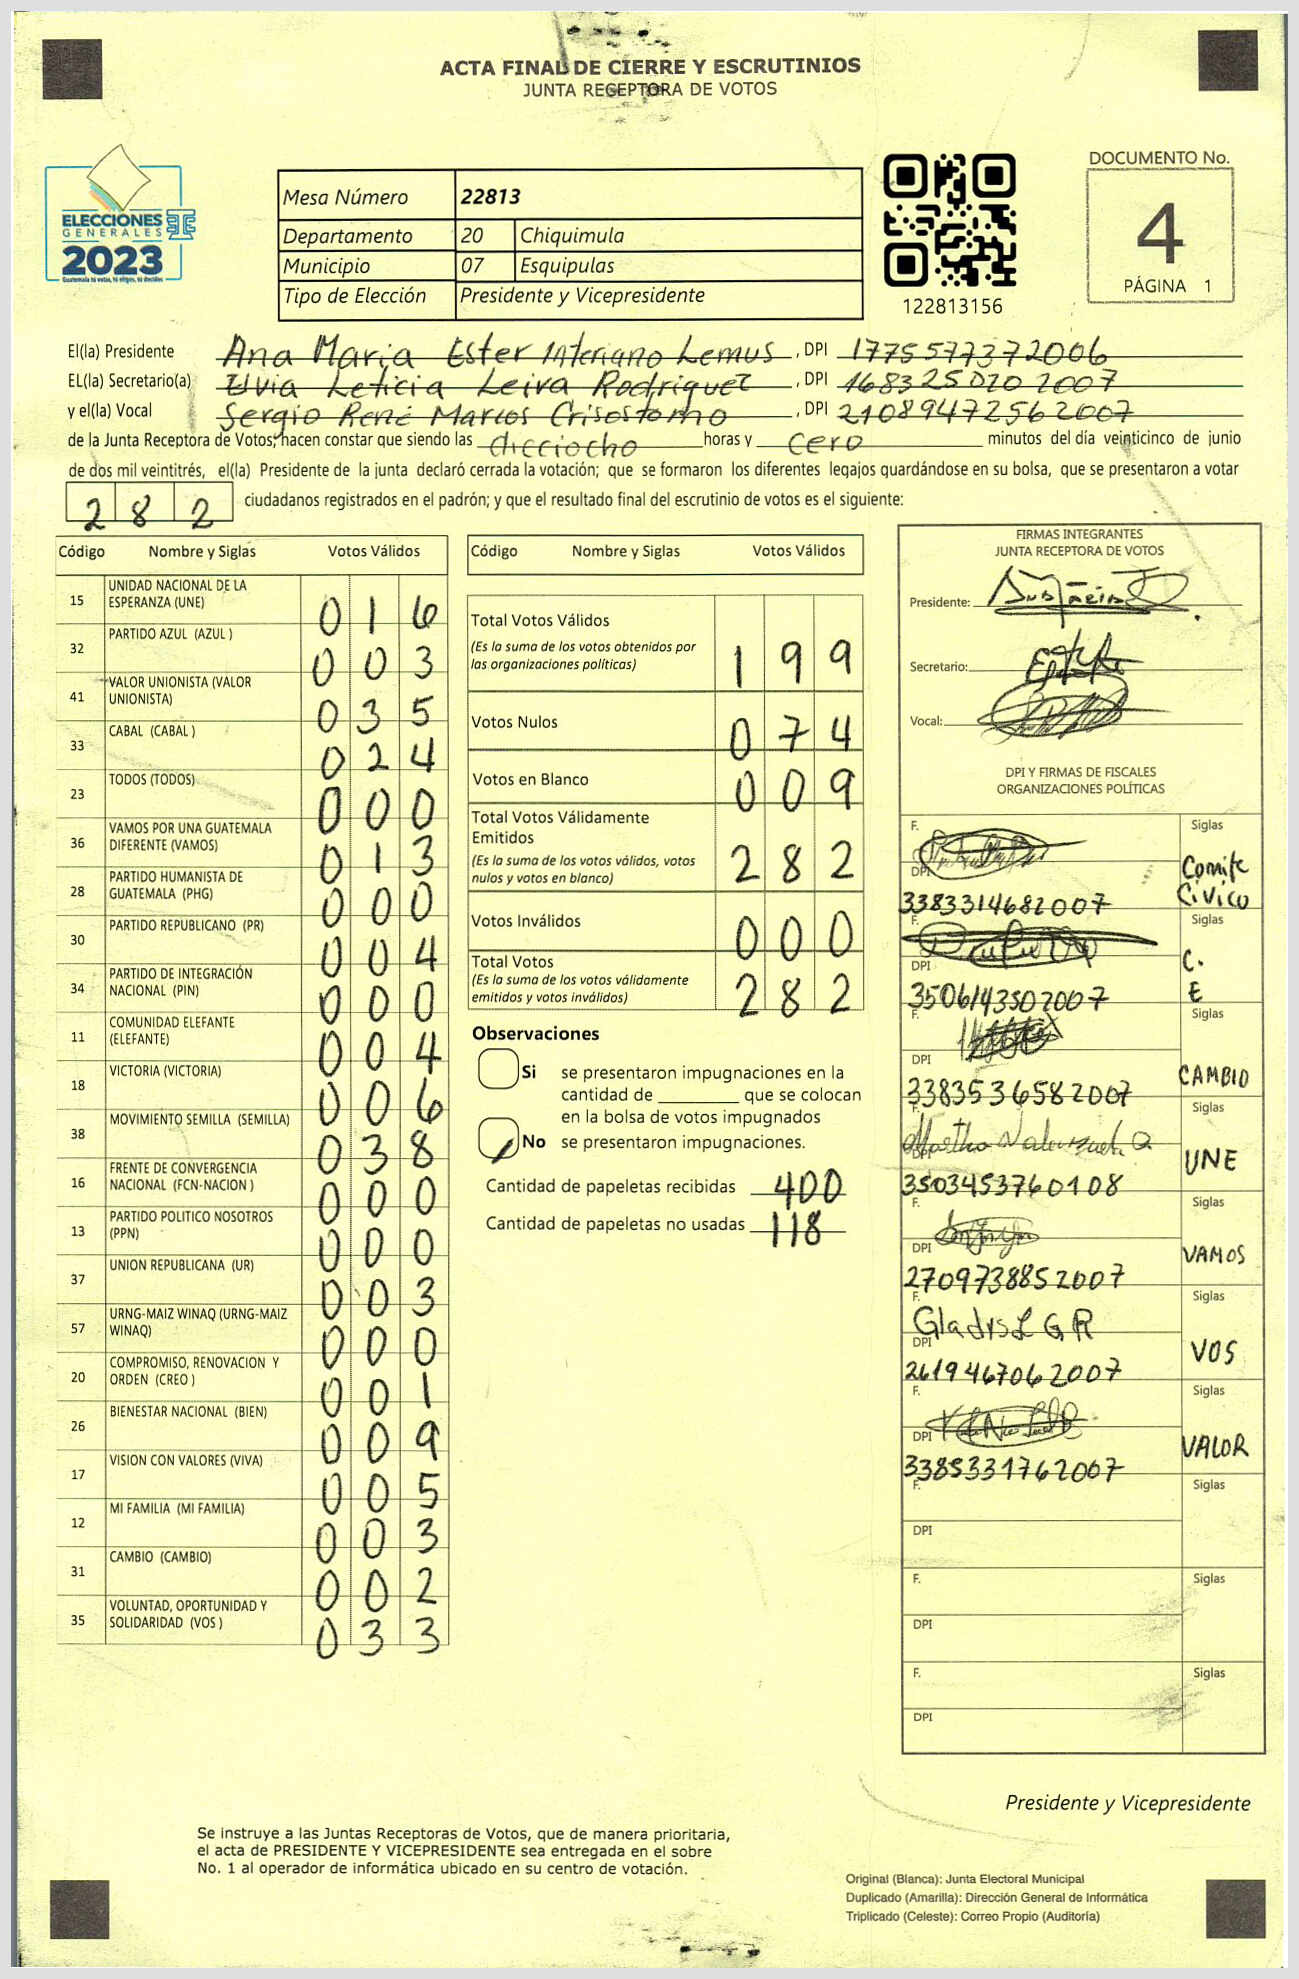 ACTA FINAL DE CIERRE Y ESCRUTINIOS
JUNTA RECEPTORA DE VOTOS
ELECCIONES
GENERALES
2023
Guatemala tú votas, tú eliges, tú decides
Mesa Número 22813
Departamento 20 Chiquimula
Municipio 07 Esquipulas
Tipo de Elección Presidente y Vicepresidente
122813156
DOCUMENTO No.
4
PÁGINA 1
El(la) Presidente Ana Maria Ester Interiano Lemus , DPI 1775577372006
EL(la) Secretario(a) Elvia Leticia Leiva Rodriguez , DPI 168325020 2007
y el(la) Vocal Sergio René Marcos Crisostomo , DPI 2108947256 2007
de la Junta Receptora de Votos, hacen constar que siendo las dieciocho horas y cero minutos del día veinticinco de junio
de dos mil veintitrés, el(la) Presidente de la junta declaró cerrada la votación; que se formaron los diferentes legajos quardándose en su bolsa, que se presentaron a votar
282 ciudadanos registrados en el padrón; y que el resultado final del escrutinio de votos es el siguiente:
Código Nombre y Siglas Votos Válidos
15 UNIDAD NACIONAL DE LA ESPERANZA (UNE) 016
32 PARTIDO AZUL (AZUL ) 003
41 VALOR UNIONISTA (VALOR UNIONISTA) 035
33 CABAL (CABAL ) 024
23 TODOS (TODOS) 000
36 VAMOS POR UNA GUATEMALA DIFERENTE (VAMOS) 013
28 PARTIDO HUMANISTA DE GUATEMALA (PHG) 000
30 PARTIDO REPUBLICANO (PR) 004
34 PARTIDO DE INTEGRACIÓN NACIONAL (PIN) 000
11 COMUNIDAD ELEFANTE (ELEFANTE) 004
18 VICTORIA (VICTORIA) 006
38 MOVIMIENTO SEMILLA (SEMILLA) 038
16 FRENTE DE CONVERGENCIA NACIONAL (FCN-NACION ) 000
13 PARTIDO POLITICO NOSOTROS (PPN) 000
37 UNION REPUBLICANA (UR) 003
57 URNG-MAIZ WINAQ (URNG-MAIZ WINAQ) 000
20 COMPROMISO, RENOVACION Y ORDEN (CREO ) 001
26 BIENESTAR NACIONAL (BIEN) 009
17 VISION CON VALORES (VIVA) 005
12 MI FAMILIA (MI FAMILIA) 003
31 CAMBIO (CAMBIO) 002
35 VOLUNTAD, OPORTUNIDAD Y SOLIDARIDAD (VOS ) 033
Código Nombre y Siglas Votos Válidos
Total Votos Válidos
(Es la suma de los votos obtenidos por
las organizaciones políticas) 199
Votos Nulos 074
Votos en Blanco 009
Total Votos Válidamente
Emitidos
(Es la suma de los votos válidos, votos
nulos y votos en blanco) 282
Votos Inválidos 000
Total Votos
(Es la suma de los votos válidamente
emitidos y votos inválidos) 282
Observaciones
Si se presentaron impugnaciones en la
cantidad de ________ que se colocan
en la bolsa de votos impugnados
No se presentaron impugnaciones.
Cantidad de papeletas recibidas 400
Cantidad de papeletas no usadas 118
FIRMAS INTEGRANTES
JUNTA RECEPTORA DE VOTOS
Presidente:
Secretario:
Vocal:
DPI Y FIRMAS DE FISCALES
ORGANIZACIONES POLÍTICAS
F. Siglas
DPI Comite
3383314682007 Civico
F. Siglas
DPI C.
3506143502007 E
F. Siglas
DPI
3383536582007 CAMBIO
F. Martha Valenzuela Siglas
DPI
3503453760108 UNE
F. Siglas
DPI
2709738852007 VAMOS
F. Siglas
Gladys L G R
DPI
2619467062007 VOS
F. Siglas
DPI
3385331762007 VALOR
F. Siglas
DPI
F. Siglas
DPI
F. Siglas
DPI
Presidente y Vicepresidente
Se instruye a las Juntas Receptoras de Votos, que de manera prioritaria,
el acta de PRESIDENTE Y VICEPRESIDENTE sea entregada en el sobre
No. 1 al operador de informática ubicado en su centro de votación.
Original (Blanca): Junta Electoral Municipal
Duplicado (Amarilla): Dirección General de Informática
Triplicado (Celeste): Correo Propio (Auditoría)